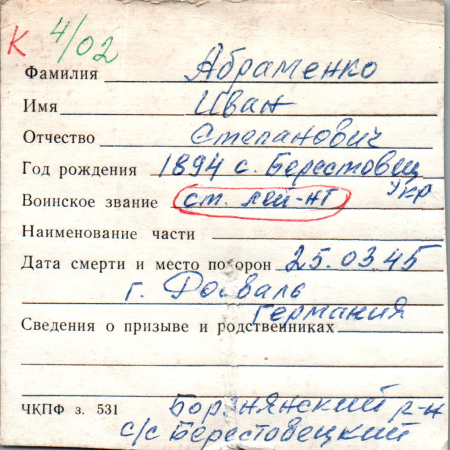 К 4/02
Фамилия Абраменко
Имя Иван
Отчество Степанович
Год рождения 1894 с. Берестовец
Укр
Воинское звание ст. лей-нт
Наименование части
Дата смерти и место по орон 25.03.45
г. Росваль
Германия
Сведения о призыве и родственниках
ЧКПФ з. 531 Борзнянский р-н
с/с Берестовецкий